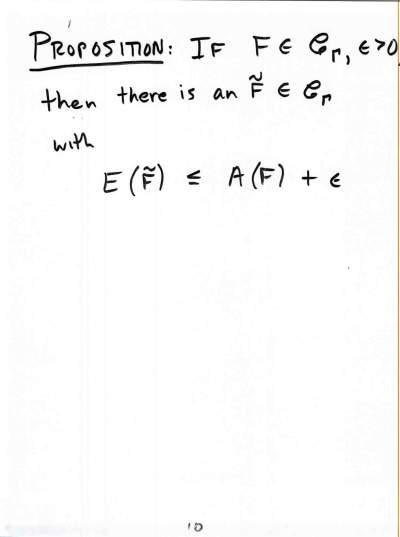 PROPOSITION: IF F ∈ 𝒞_Γ, ε>0,
then there is an F̃ ∈ 𝒞_Γ
with
E(F̃) ≤ A(F) + ε
10